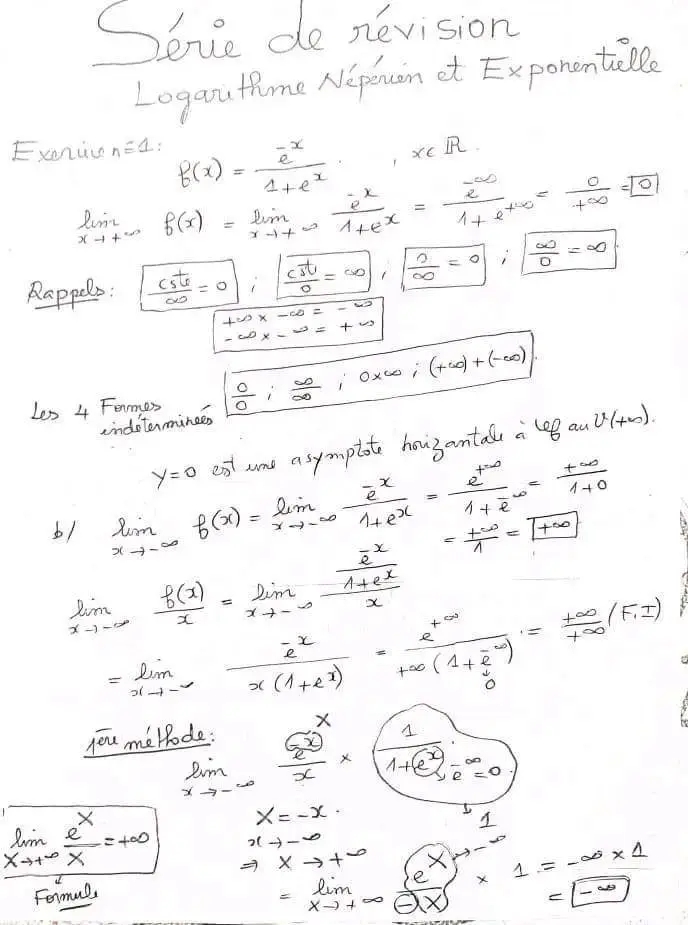 Série de révision
Logarithme Népérien et Exponentielle
Exercice n=1:
f(x) = e^-x / (1+e^x) , x∈ℝ.
lim x→+∞ f(x) = lim x→+∞ e^-x / (1+e^x) = e^-∞ / (1+e^+∞) = 0/+∞ = 0
Rappels: cste/∞ = 0 ; cste/0 = ∞ ; 0/∞ = 0 ; ∞/0 = ∞
+∞ x -∞ = -∞
-∞ x -∞ = +∞
Les 4 Formes indéterminées 0/0 ; ∞/∞ ; 0x∞ ; (+∞)+(-∞).
y=0 est une asymptote horizantale à Cf au V(+∞).
b/ lim x→-∞ f(x) = lim x→-∞ e^-x / (1+e^x) = e^+∞ / (1+e^-∞) = +∞ / (1+0)
= +∞/1 = +∞
lim x→-∞ f(x)/x = lim x→-∞ (e^-x / (1+e^x)) / x
= lim x→-∞ e^-x / (x(1+e^x)) = e^+∞ / (+∞(1+e^-∞)) = +∞/+∞ (F.I)
0
1ère méthode: X
lim x→-∞ e^-x / x × 1 / (1+e^x) e^-∞ = 0
1
X = -x.
x→-∞
⇒ X→+∞
lim X→+∞ e^X / X = +∞
Formule
= lim X→+∞ e^X / -X → -∞ × 1 = -∞ x 1
= -∞